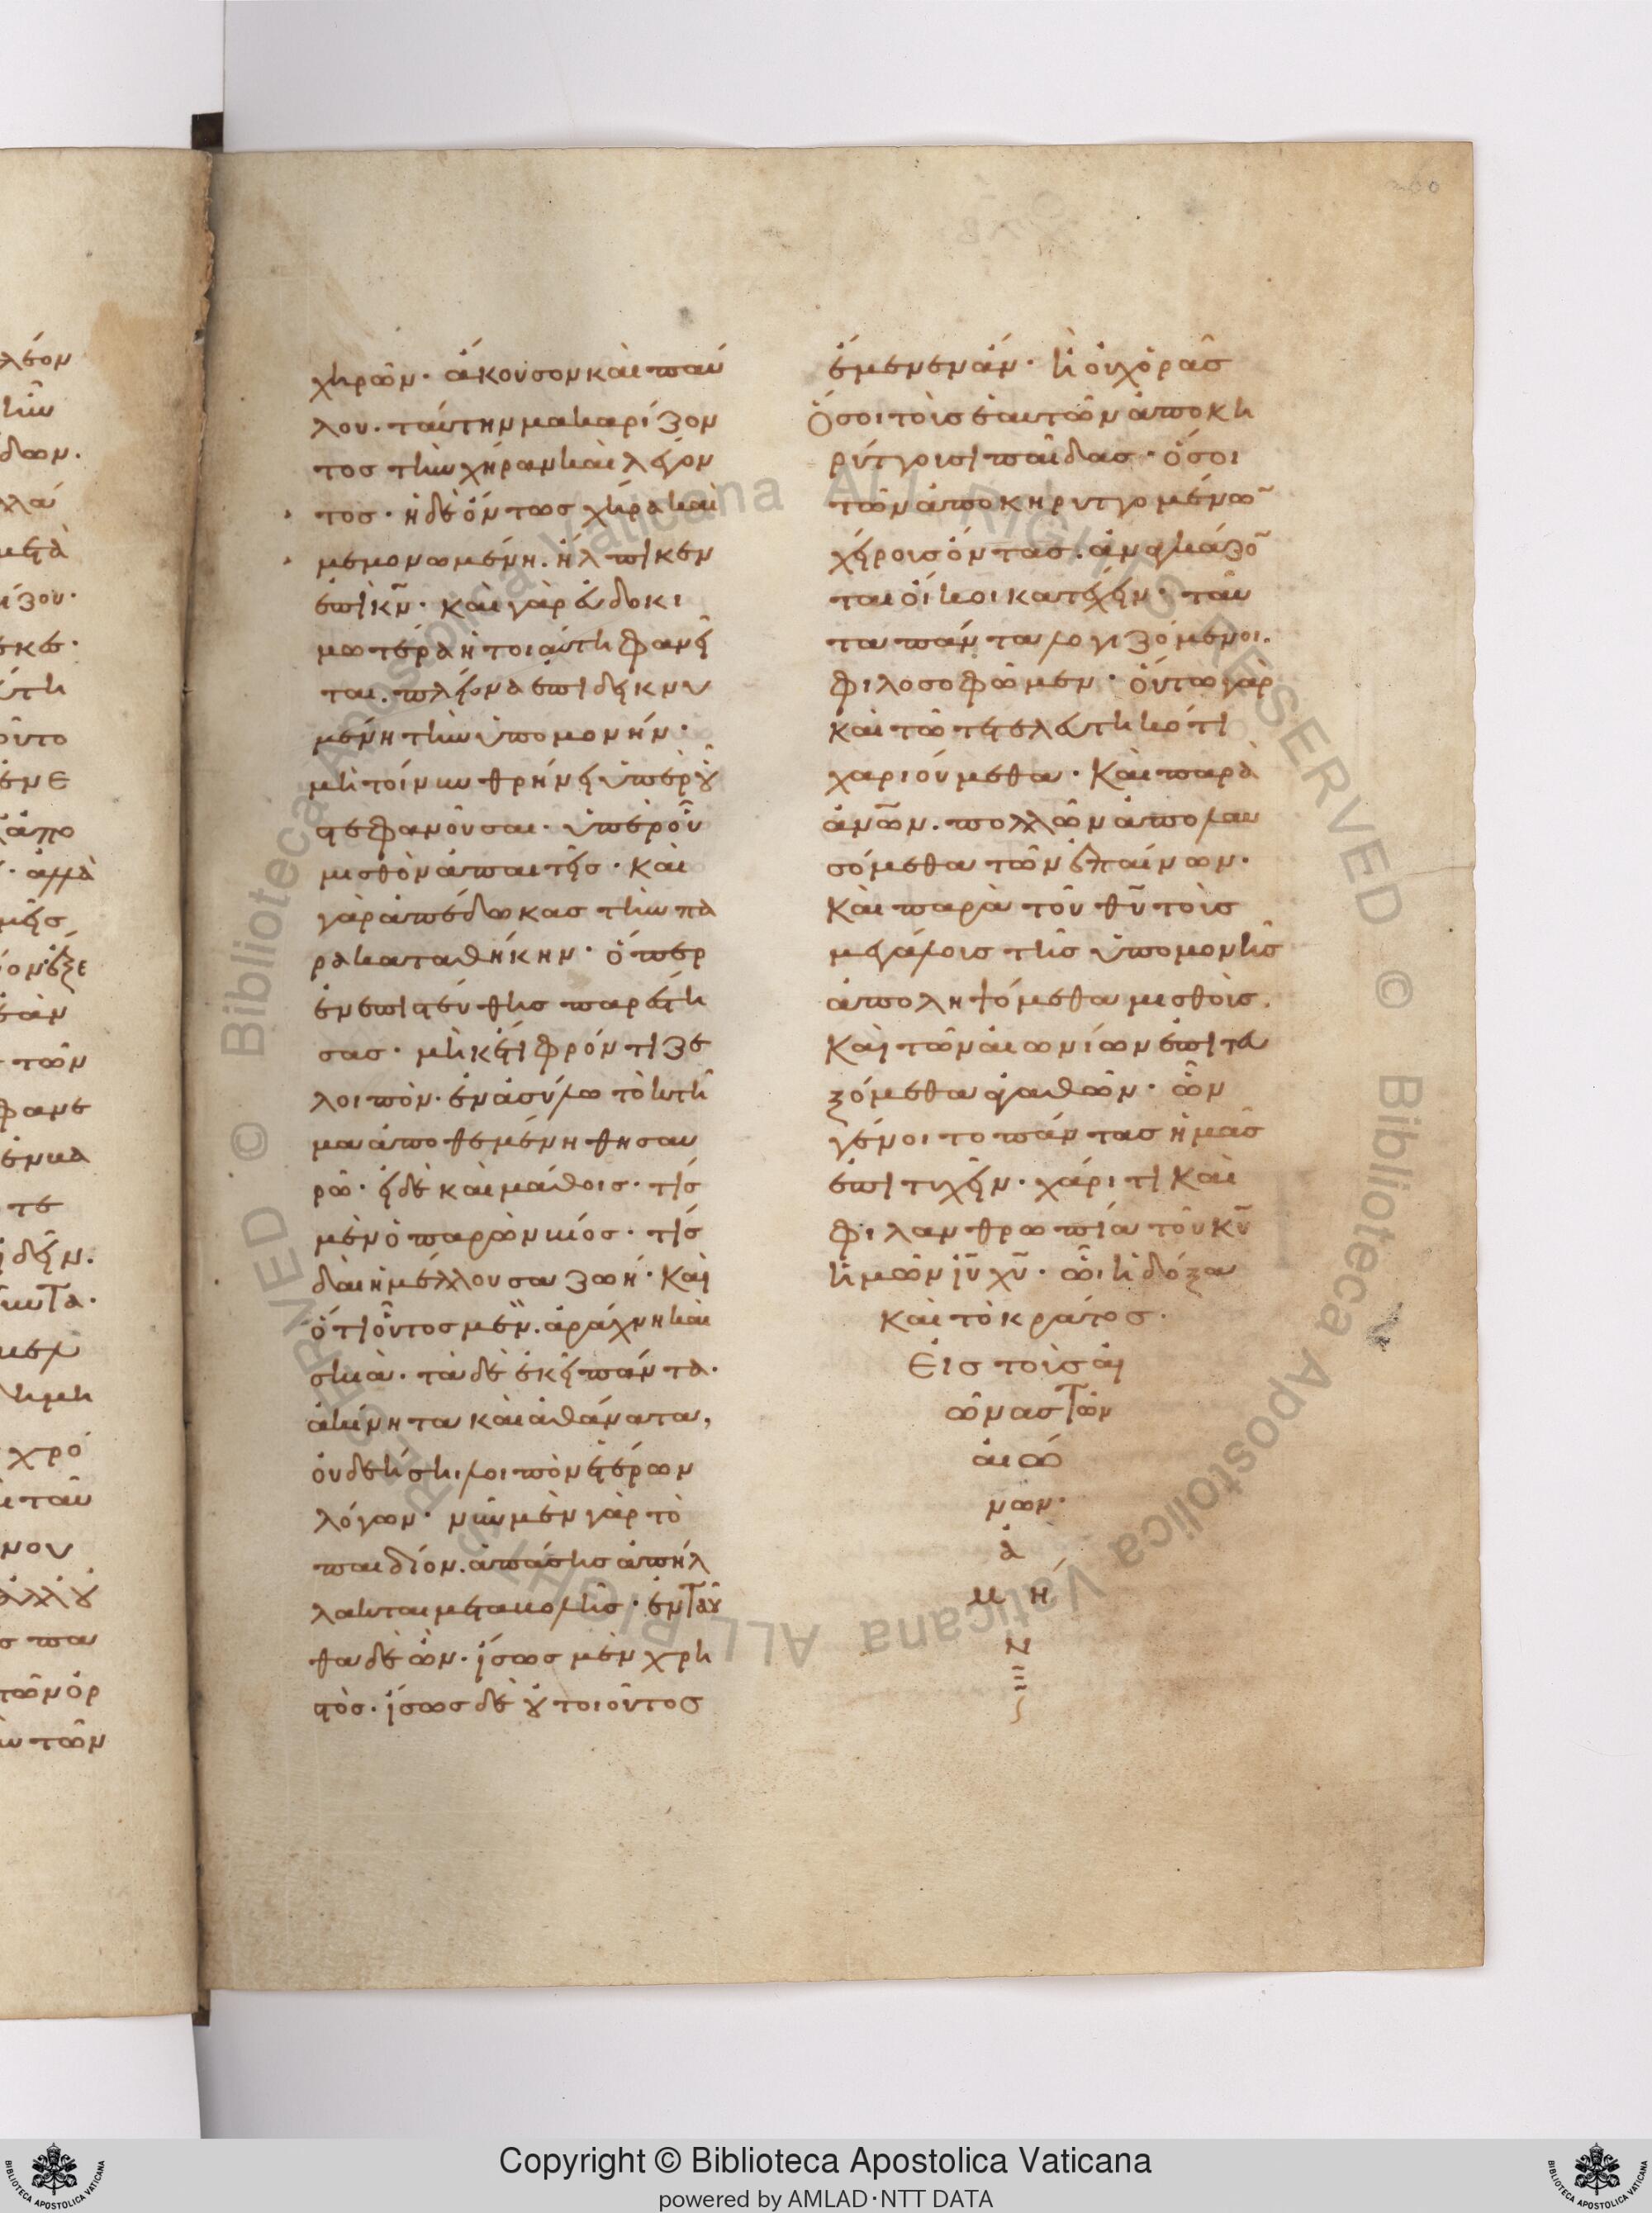 χηρῶν· ἄκουσον καὶ παύ
λου. ταύτην μακαρίζον
τος τὴν χήραν καὶ λέγον
τος· ἡ δὲ ὄντως χήρα καὶ
μεμονωμένη. ἤλπικεν
ἐπὶ κ̅ν̅· καὶ γὰρ εὐδοκι
μωτέρα ἡ τοιαύτη φανεῖ
ται. πλείονα ἐπιδεικνυ
μένη τὴν ὑπομονήν·
μὴ τοίνυν θρήνει ὑπὲρ οὗ
στεφανοῦσαι. ὑπὲρ οὗ
μισθὸν ἀπαιτεῖς· καὶ
γὰρ ἀπέδωκας τὴν πα
ρακαταθήκην· ὅπερ
ἐνεπιστεύθης παρέστη
σας· μηκέτι φρόντιζε
λοιπόν· ἐν ἀσύλω τὸ κτῆ
μα ἀποθεμένη θησαυ
ρῶ· εἰ δὲ καὶ μάθοις· τίς
μὲν ὁ παρὼν βίος· τίς
δαὶ ἡ μέλλουσα ζωή· καὶ
ὅτι οὗτος μὲν. ἀράχνη καὶ
σκιὰ· τὰ δὲ ἐκεῖ πάντα·
ἀκίνητα καὶ ἀθάνατα,
οὐ δεήσῃ λοιπὸν ἑτέρων
λόγων· νῦν μὲν γὰρ τὸ
παιδίον. ἁπάσης ἀπήλ
λακται μεταβολῆς· ἐνταῦ
θα δὲ ὢν· ἴσως μὲν χρη
στὸς· ἴσως δὲ οὐ τοιοῦτος
ἔμενεν ἄν· ἢ οὐχ ὁρᾶς
Ὅσοι τοὺς ἑαυτῶν ἀποκη
ρύττουσι παῖδας· ὅσοι
τῶν ἀποκηρυττομένω̅
χείρους ὄντας. ἀναγκάζο̅
ται οἴκοι κατέχειν· ταῦ
τα πάντα λογιζόμενοι.
φιλοσοφῶμεν· οὕτω γὰρ
καὶ τῶ τετελευτηκότι
χαριούμεθα· Καὶ παρὰ
ἀν̅ω̅ν. πολλῶν ἀπολαυ
σόμεθα τῶν ἐπαίνων·
Καὶ παρὰ τοῦ θ̅υ̅ τοὺς
μεγάλους τῆς ὑπομονῆς
ἀποληψόμεθα μισθούς.
Καὶ τῶν αἰωνίων ἐπιτευ
ξόμεθα ἀγαθῶν· ὧν
γένοιτο πάντας ἡμᾶς
ἐπιτυχεῖν· χάριτι καὶ
φιλανθρωπία τοῦ κ̅υ̅
ἡμῶν ι̅υ̅ χ̅υ̅· ὧ ἡ δόξα
καὶ τὸ κράτος.
Εἰς τοὺς αἰ
ῶνας τῶν
αἰώ
νων·
ἀ
μή
Ν